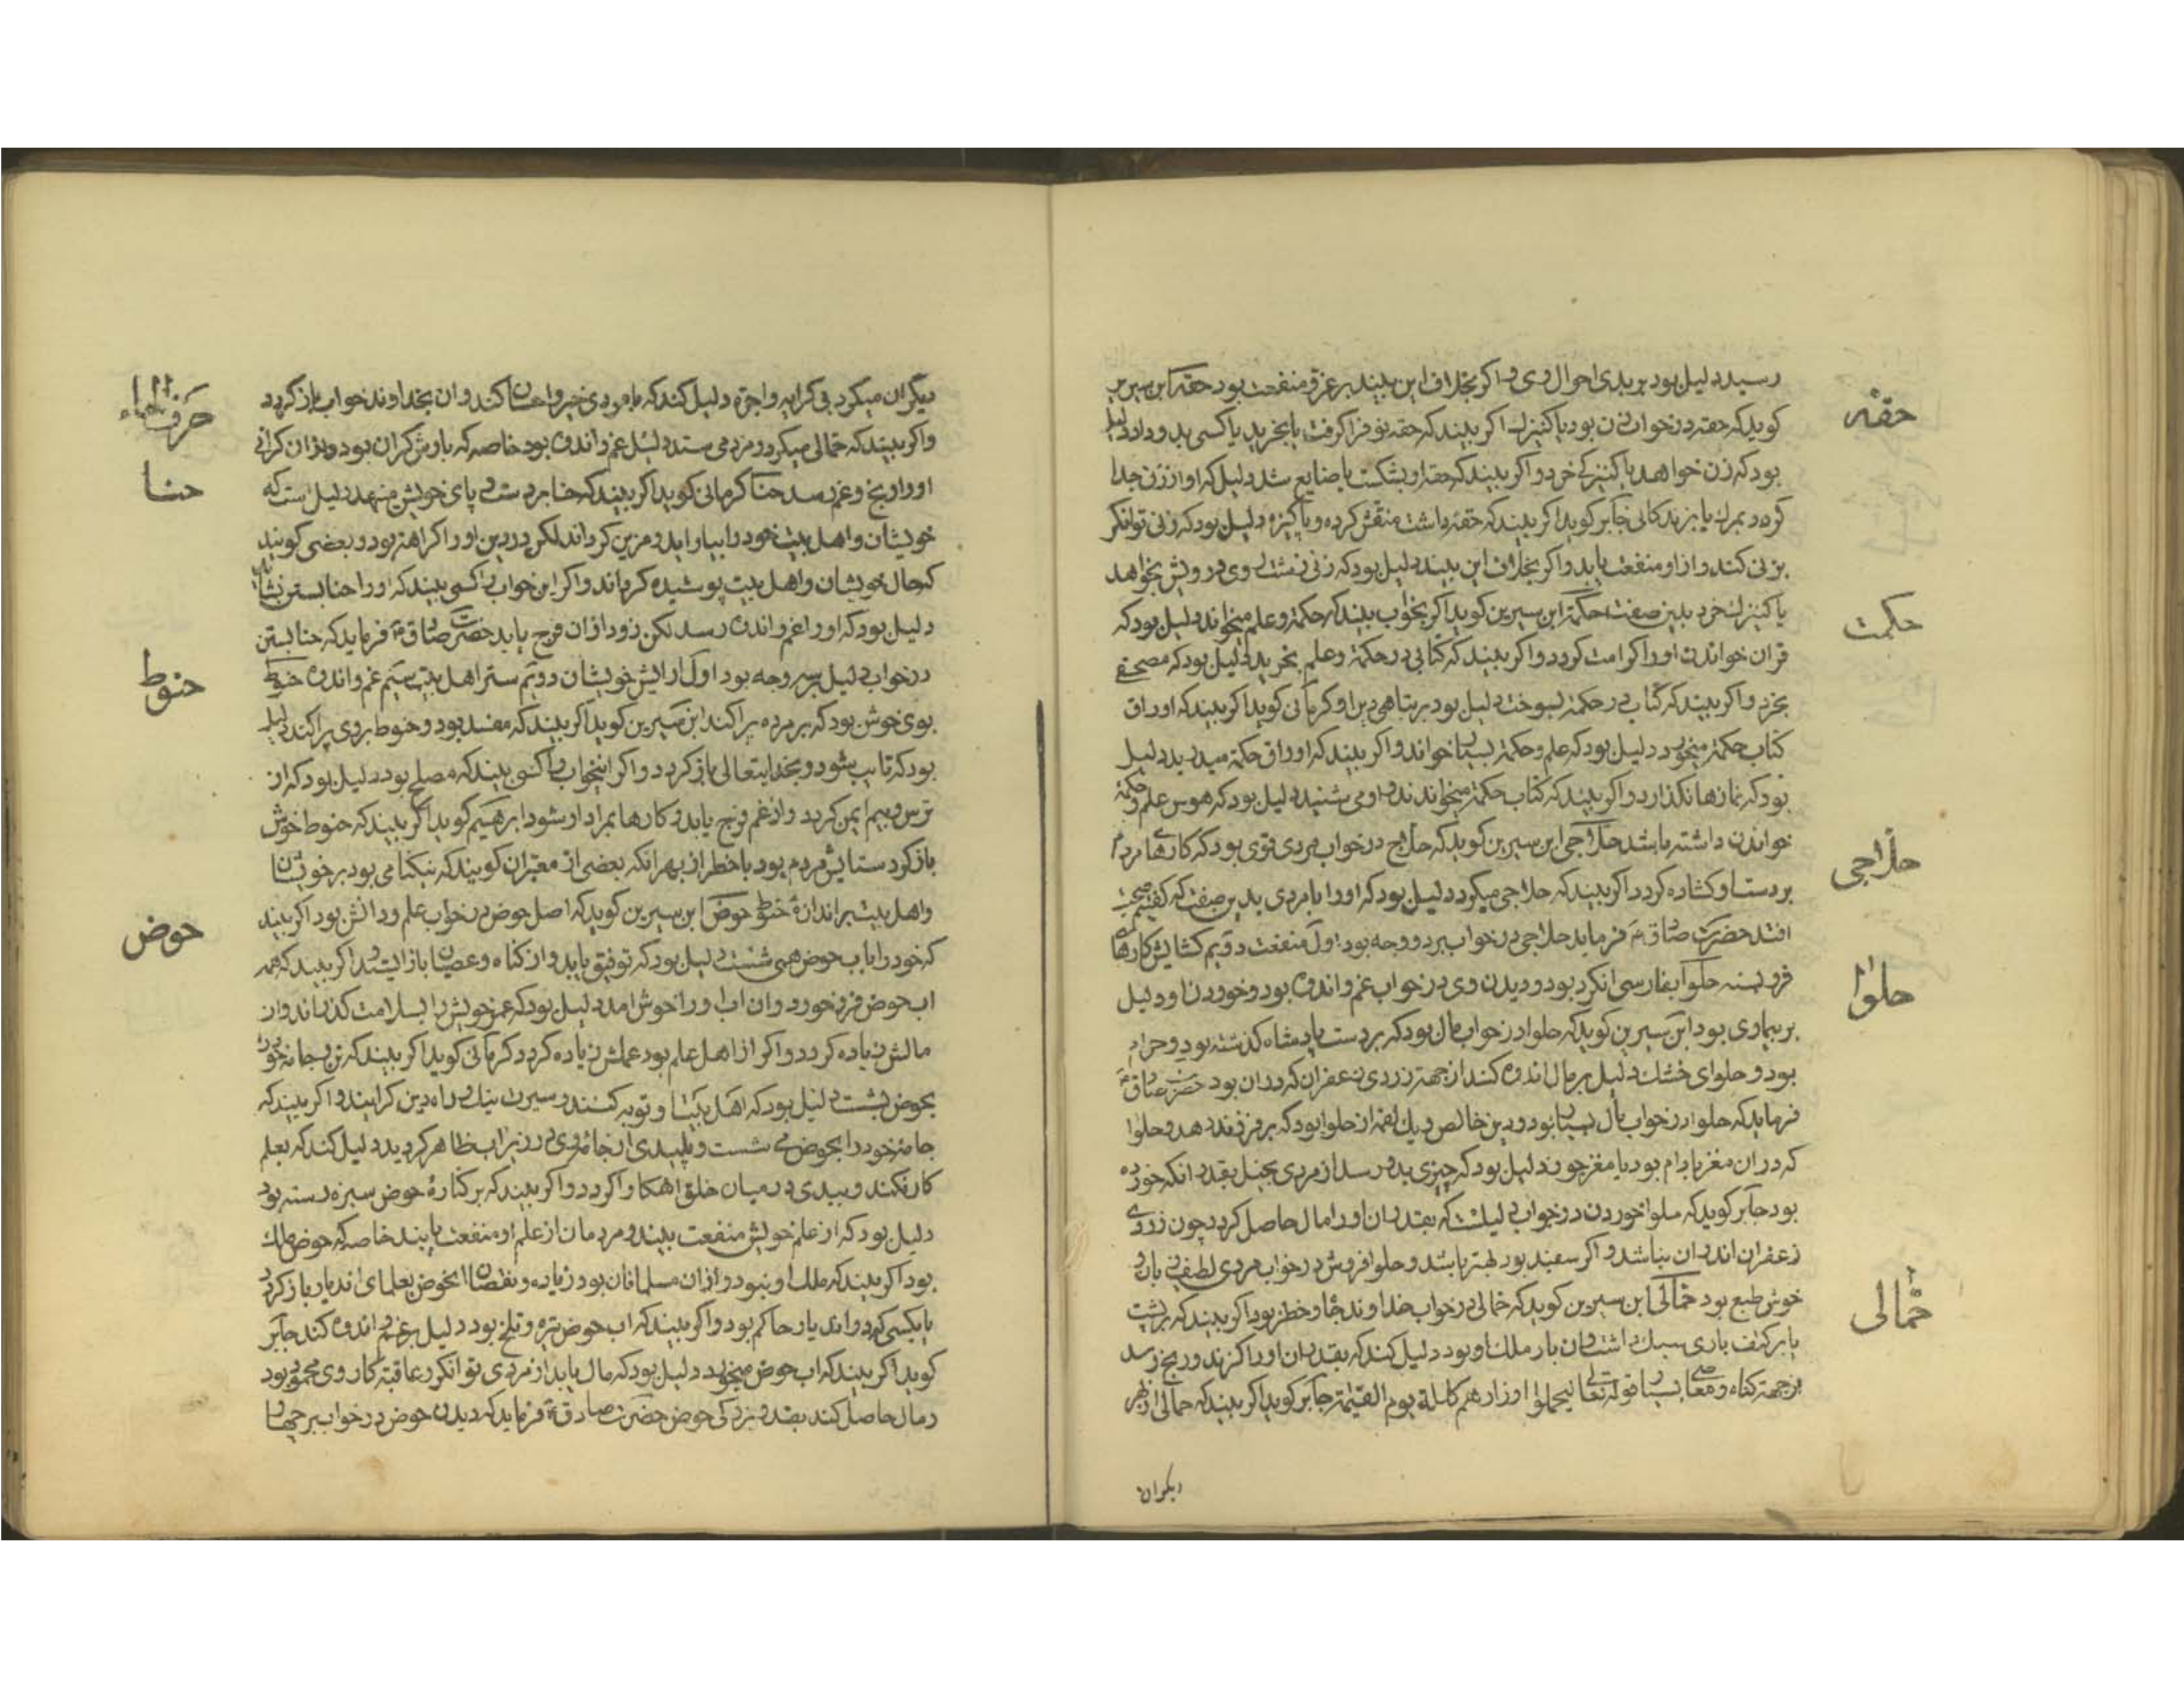 رسید دلیل بود بر بدی احوال وی و اکر بخلاف این بیند بر عز و منفعت بود حقه ابن سیرین
حقه
کوید که حقه در خواب زن بود یا کنیزک اکر بیند که حقه نو فرا کرفت یا بخرید یا کسی بدو داد دلیل
بود که زن خواهد یا کنیزکی خرد و اکر بیند که حقه او بشکست یا ضایع شد دلیل که او از زن جدا
کردد بمرک یا بزندکانی جابر کوید اکر بیند که حقه داشت منقش کرده و پاکیزه دلیل بود که زنی توانکر
بزنی کند و از او منفعت یابد و اکر بخلاف این بیند دلیل بود که زنی زشت روی درویش بخواهد
یا کنیزک خرد بدین صفت حکمة ابن سیرین کوید اکر بخواب بیند که حکمة و علم میخواند دلیل بود که
حکمت
قران خواندن او را کرامت کردد و اکر بیند که کتابی در حکمة و علم بخرید دلیل بود که مصحفی
بخرد و اکر بیند که کتابی در حکمة بسوخت دلیل بود بر تباهی دین او کرمانی کوید اکر بیند که اوراق
کتاب حکمة میخورد دلیل بود که علم و حکمة بسیار خواند و اکر بیند که اوراق حکمة میدرید دلیل
بود که نمازها نکذارد و اکر بیند که کتاب حکمة میخواندند و او می شنید دلیل بود که هوس علم و حکمة
خواندن داشته باشد حلاجی ابن سیرین کوید که حلاج در خواب مردی قوی بود که کارهای مردم
حلاجی
بر دست او کشاده کردد اکر بیند که حلاجی میکرد دلیل بود که او را با مردی بدین صفت که کفتیم صحبت
افتد حضرت صادق ع فرماید حلاجی در خواب بر دو وجه بود اول منفعت دویم کشایش کارهای
فرو بسته حلوا بفارسی انکرد بود و دیدن وی در خواب غم و اندوه بود و خوردن او دلیل
حلوا
بر بیماری بود ابن سیرین کوید که حلوا در خواب مال بود که بر دست پادشاه کذشته بود و حرام
بود و حلوای خشک دلیل بر مال اندوه کند از جهة زردی زعفران که در ان بود حضرت صادق ع
فرماید که حلوا در خواب مال بسیار بود و دین خالص و یک لقمه از حلوا بود که بر فرزند دهد و حلوا
که در ان مغز بادام بود یا مغز جوز دلیل بود که چیزی بدو رسد از مردی بخیل بقدر انکه خورده
بود جابر کوید که حلوا خوردن در خواب دلیلست که بقدر ان او را مال حاصل کردد چون زردی
زعفران اندر ان نباشد و اکر سفید بود بهتر باشد و حلوا فروش در خواب مردی لطیف زبان و
خوش طبع بود حمّالی ابن سیرین کوید که حمالی در خواب خداوند جاه و خطر بود اکر بیند که بر پشت
حمّالی
یا بر کتف باری سبک داشت و ان بار ملک او بود دلیل کند که بقدر ان او را کزند و رنج رسد
از جهة کناه و معاصی بسیار قوله تعالی لیحملوا اوزارهم کاملة یوم القیمة جابر کوید اکر بیند که حمالی از بهر
دیکران
دیگران میکرد بی کرایه و اجرة دلیل کند که با مردی خیر و احسان کند و ان بخداوند خواب باز کردد
حرف الحاء
و اکر بیند که حمالی میکرد و مزد می ستد دلیل غم و اندوه بود خاصه که بارش کران بود و از ان کرانی
او را رنج و غم رسد حنا کرمانی کوید اکر بیند که حنا بر دست و پای خویش می نهد دلیل است که
حنا
خویشان و اهل بیت خود را بیاراید و مزین کرداند لکن در دین او را کراهت بود و بعضی کویند
که حال خویشان و اهل بیت پوشیده کرداند و اکر این خواب را کسی بیند که او را حنا بستن نشاید
دلیل بود که او را غم و اندوه رسد لکن زود از ان فرج یابد حضرت صادق ع فرماید که حنا بستن
در خواب دلیل بر سه وجه بود اول ارایش خویشان دویم ستر اهل بیت سیم غم و اندوه حنوط
حنوط
بوی خوش بود که بر مرده پراکند ابن سیرین کوید اکر بیند که مفسد بود و حنوط بر وی پراکند دلیل
بود که تایب شود و بخدایتعالی باز کردد و اکر اینخواب را کسی بیند که مصلح بود دلیل بود که از
ترس و بیم ایمن کردد و از غم فرج یابد و کارها بمراد او شود ابرهیم کوید اکر بیند که حنوط خوش
باز کرد ستایش مردم بود با خطر از بهر انکه بعضی از معبران کویند که نیکنامی بود بر خویشان
و اهل بیت بر اندازه حنوط حوض ابن سیرین کوید که اصل حوض در خواب علم و دانش بود اکر بیند
حوض
که خود را باب حوض همی شست دلیل بود که توفیق یابد و از کناه و عصیان باز ایستد و اکر بیند که همه
اب حوض فرو خورد و ان اب او را خوش امد دلیل بود که عمر خویش را بسلامت کذراند و ان
مالش زیاده کردد و اکر از اهل علم بود عملش زیاده کردد کرمانی کوید اکر بیند که تن و جامه خود
بحوض بشست دلیل بود که اهل بیتش او توبه کنند و سیرت نیک و راه دین کرایند و اکر بیند که
جامهٔ خود را بحوض می شست و پلیدی از جامه وی در زیر اب ظاهر کردید دلیل کند که بعلم
کار نکند و بیدی در میان خلق اشکارا کردد و اکر بیند که بر کنارهٔ حوض سبزه رسته بود
دلیل بود که از علم خویش منفعت بیند و مردمان از علم او منفعت یابند خاصه که حوض ملک
بود اکر بیند که ملک او نبود و از ان مسلمانان بود زیاده و نقصان انحوض بعلمای ان دیار باز کردد
یا بکسی که در ان دیار حاکم بود و اکر بیند که اب حوض تیره و تلخ بود دلیل بر غم و اندوه کند جابر
کوید اکر بیند که اب حوض میخورد دلیل بود که مال یابد از مردی توانکر و عاقبة کار وی محمود بود
و مال حاصل کند بقدر بزرکی حوض حضرت صادق ع فرماید که دیدن حوض در خواب بر چهار